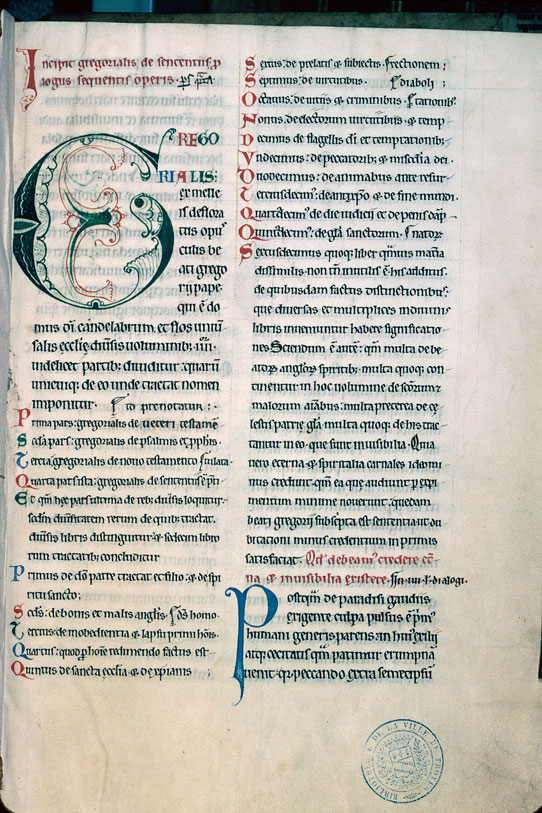 Incipit gregorialis de sententiis p
logus sequentis operis.
GREGO
RIALIS:
ex melle
is deflora
tus opus
culis be
ati grego
rii pape.
qui ē do
mus dī candelabrum. et flos uniū
salis ecclīę
uidelicet partib; diuiditur. quarū
unicuiq; de eo unde tractat nomen
imponitur.
to prenotatur:
Prima pars: gregorialis de ueteri testamē
Scda pars: gregorialis de psalmis et pphis.
Tercia: gregorialis de nouo testamento
Quarta pars ista: gregorialis de sententiis
Et qm hęc pars ultima de reb; diuīsis loquitur.
scdm diuīsitatem rerum de quib; tractat.
diuīsis libris distinguitur. et sedecim libro
rum tractatib; concluditur
Primus de dō patre tractat et filio. & de spi
ritu sancto;
Scds: de bonis et malis anglīs. hōs homo.
Tercius: de inobedientia & lapsu primi
Quartus: quod p hoīe redimendo factus est
Quintus de sancta ecclīa & de xpianis;
Sextus: de prelatis & subiectis.
Septimus: de uirtutibus. diaboli;
Octauus: de uitiis & criminibus.
Nonus: de electorum uirtutibus & temp
Decimus: de flagellis dī et temptationib;
Undecimus: de peccatorib; & misedīa dei.
Duodecimus: de animabus ante resur
Terciusdecim;: de antixpo & de fine mundi.
Quartusdecim; de die iudicii et de penis
Quintusdecim;: de glā sanctorum.
Sextusdecimus quoq; liber
dissimilis. non tm inutilis ē his additus.
de quibusdam factus distinctionibus;
que diuersas et multiplices in diuinis
libris inueniuntur habere significatio
nes. Sciendum ē autē: qm multa de be
atorum anglorum spiritib;. multa quoq; con
tinentur in hoc uolumine de scōrum &
malorum aīabus: multa preterea de cę
lestis patrię glā. multa quoq; de his trac
tantur in eo. que sunt inuisibilia. Qua
uero eterna & spiritalia carnales
nus credunt. qm ea que audiunt p expi
mentum minime nouerunt. quedam
beati gregorii subscpta est sententia. ut du
bitationi minus credentium in primis
satisfaciat. Qd debeam; credere etī
na & inuisibilia existere. dialogi.
Postqm de paradisi gaudiis
exigente culpa pulsus ē pm;
humani generis parens: in
atq; cecitatis qm patimur erumpnā
uenit. qr peccando extra semetipsū
BIBLIOTHEQUE DE LA VILLE DE TROYES